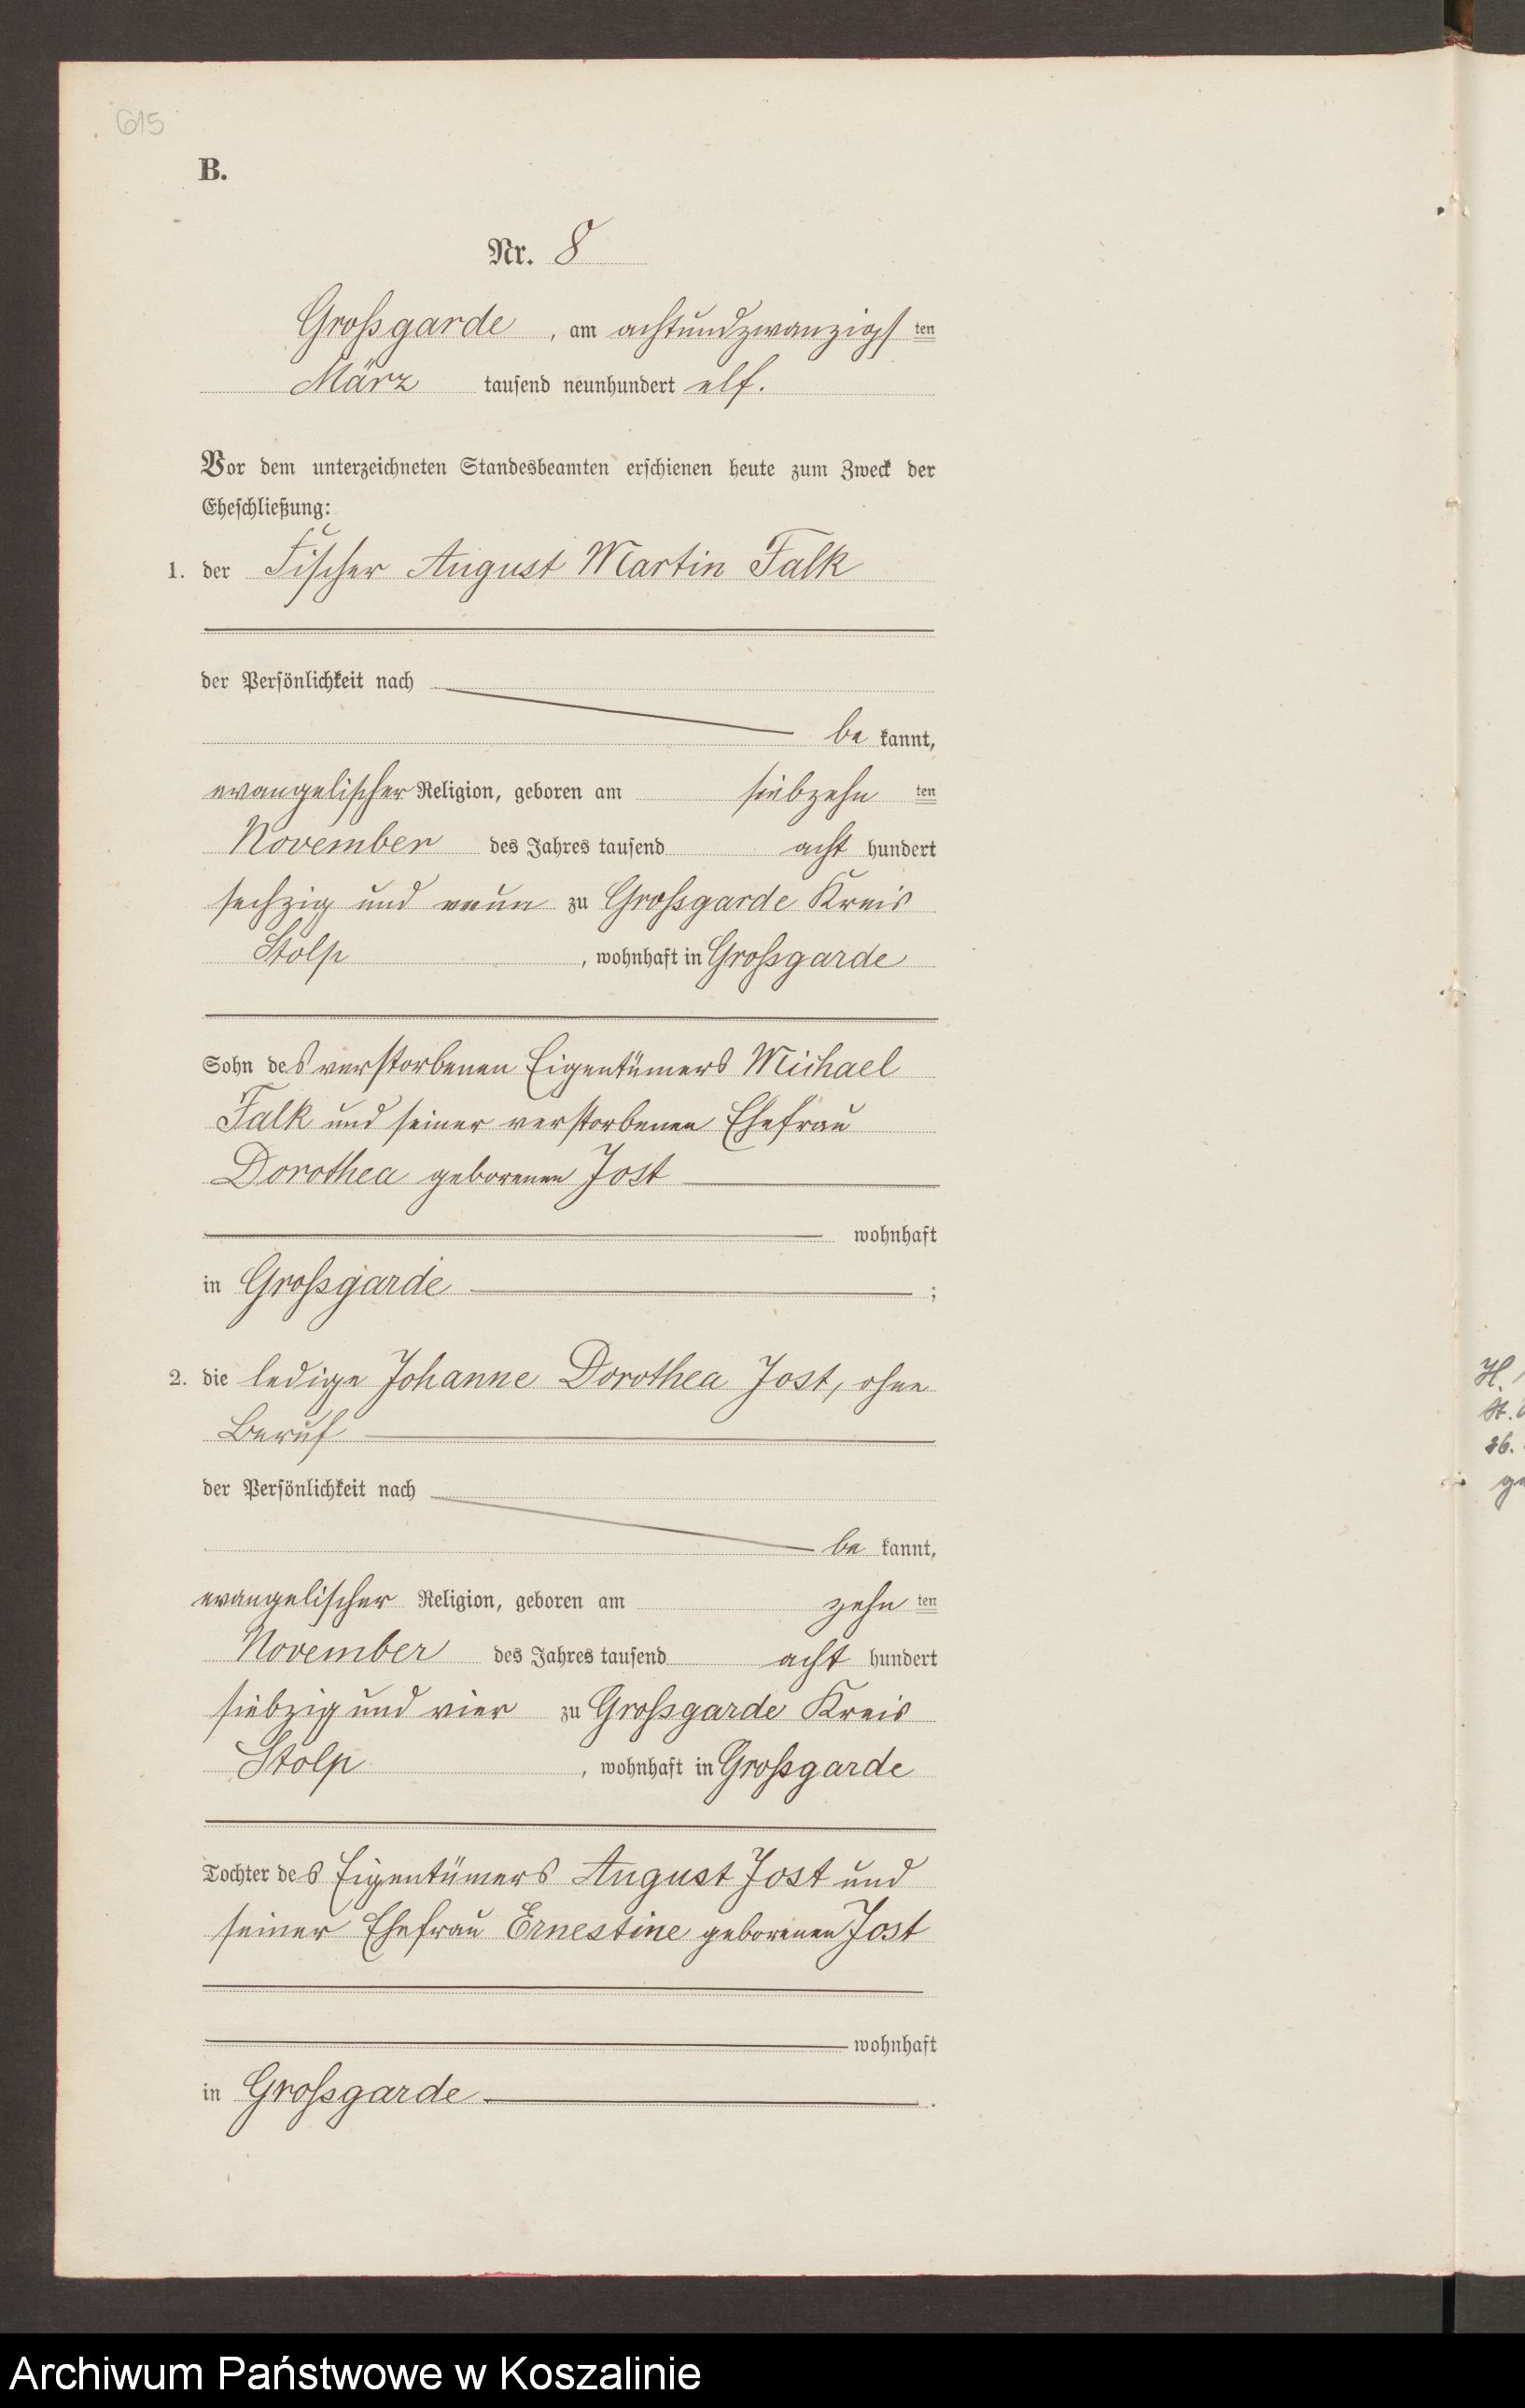 615
B.
Nr. 8
Großgarde, am achtundzwanzigsten
März tausend neunhundert elf.
Vor dem unterzeichneten Standesbeamten erschienen heute zum Zweck der
Eheschließung:
1. der Fischer August Martin Falk
der Persönlichkeit nach
be kannt,
evangelischer Religion, geboren am siebzehn ten
November des Jahres tausend acht hundert
sechzig und neun zu Großgarde Kreis
Stolp, wohnhaft in Großgarde
Sohn des verstorbenen Eigentümers Michael
Falk und seiner verstorbenen Ehefrau
Dorothea geborenen Jost
wohnhaft
in Großgarde ;
2. die ledige Johanne Dorothea Jost, ohne
Beruf
der Persönlichkeit nach
be kannt,
evangelischer Religion, geboren am zehn ten
November des Jahres tausend acht hundert
siebzig und vier zu Großgarde Kreis
Stolp, wohnhaft in Großgarde
Tochter des Eigentümers August Jost und
seiner Ehefrau Ernestine geborenen Jost
wohnhaft
in Großgarde .
H.
St.
26.
Archiwum Państwowe w Koszalinie